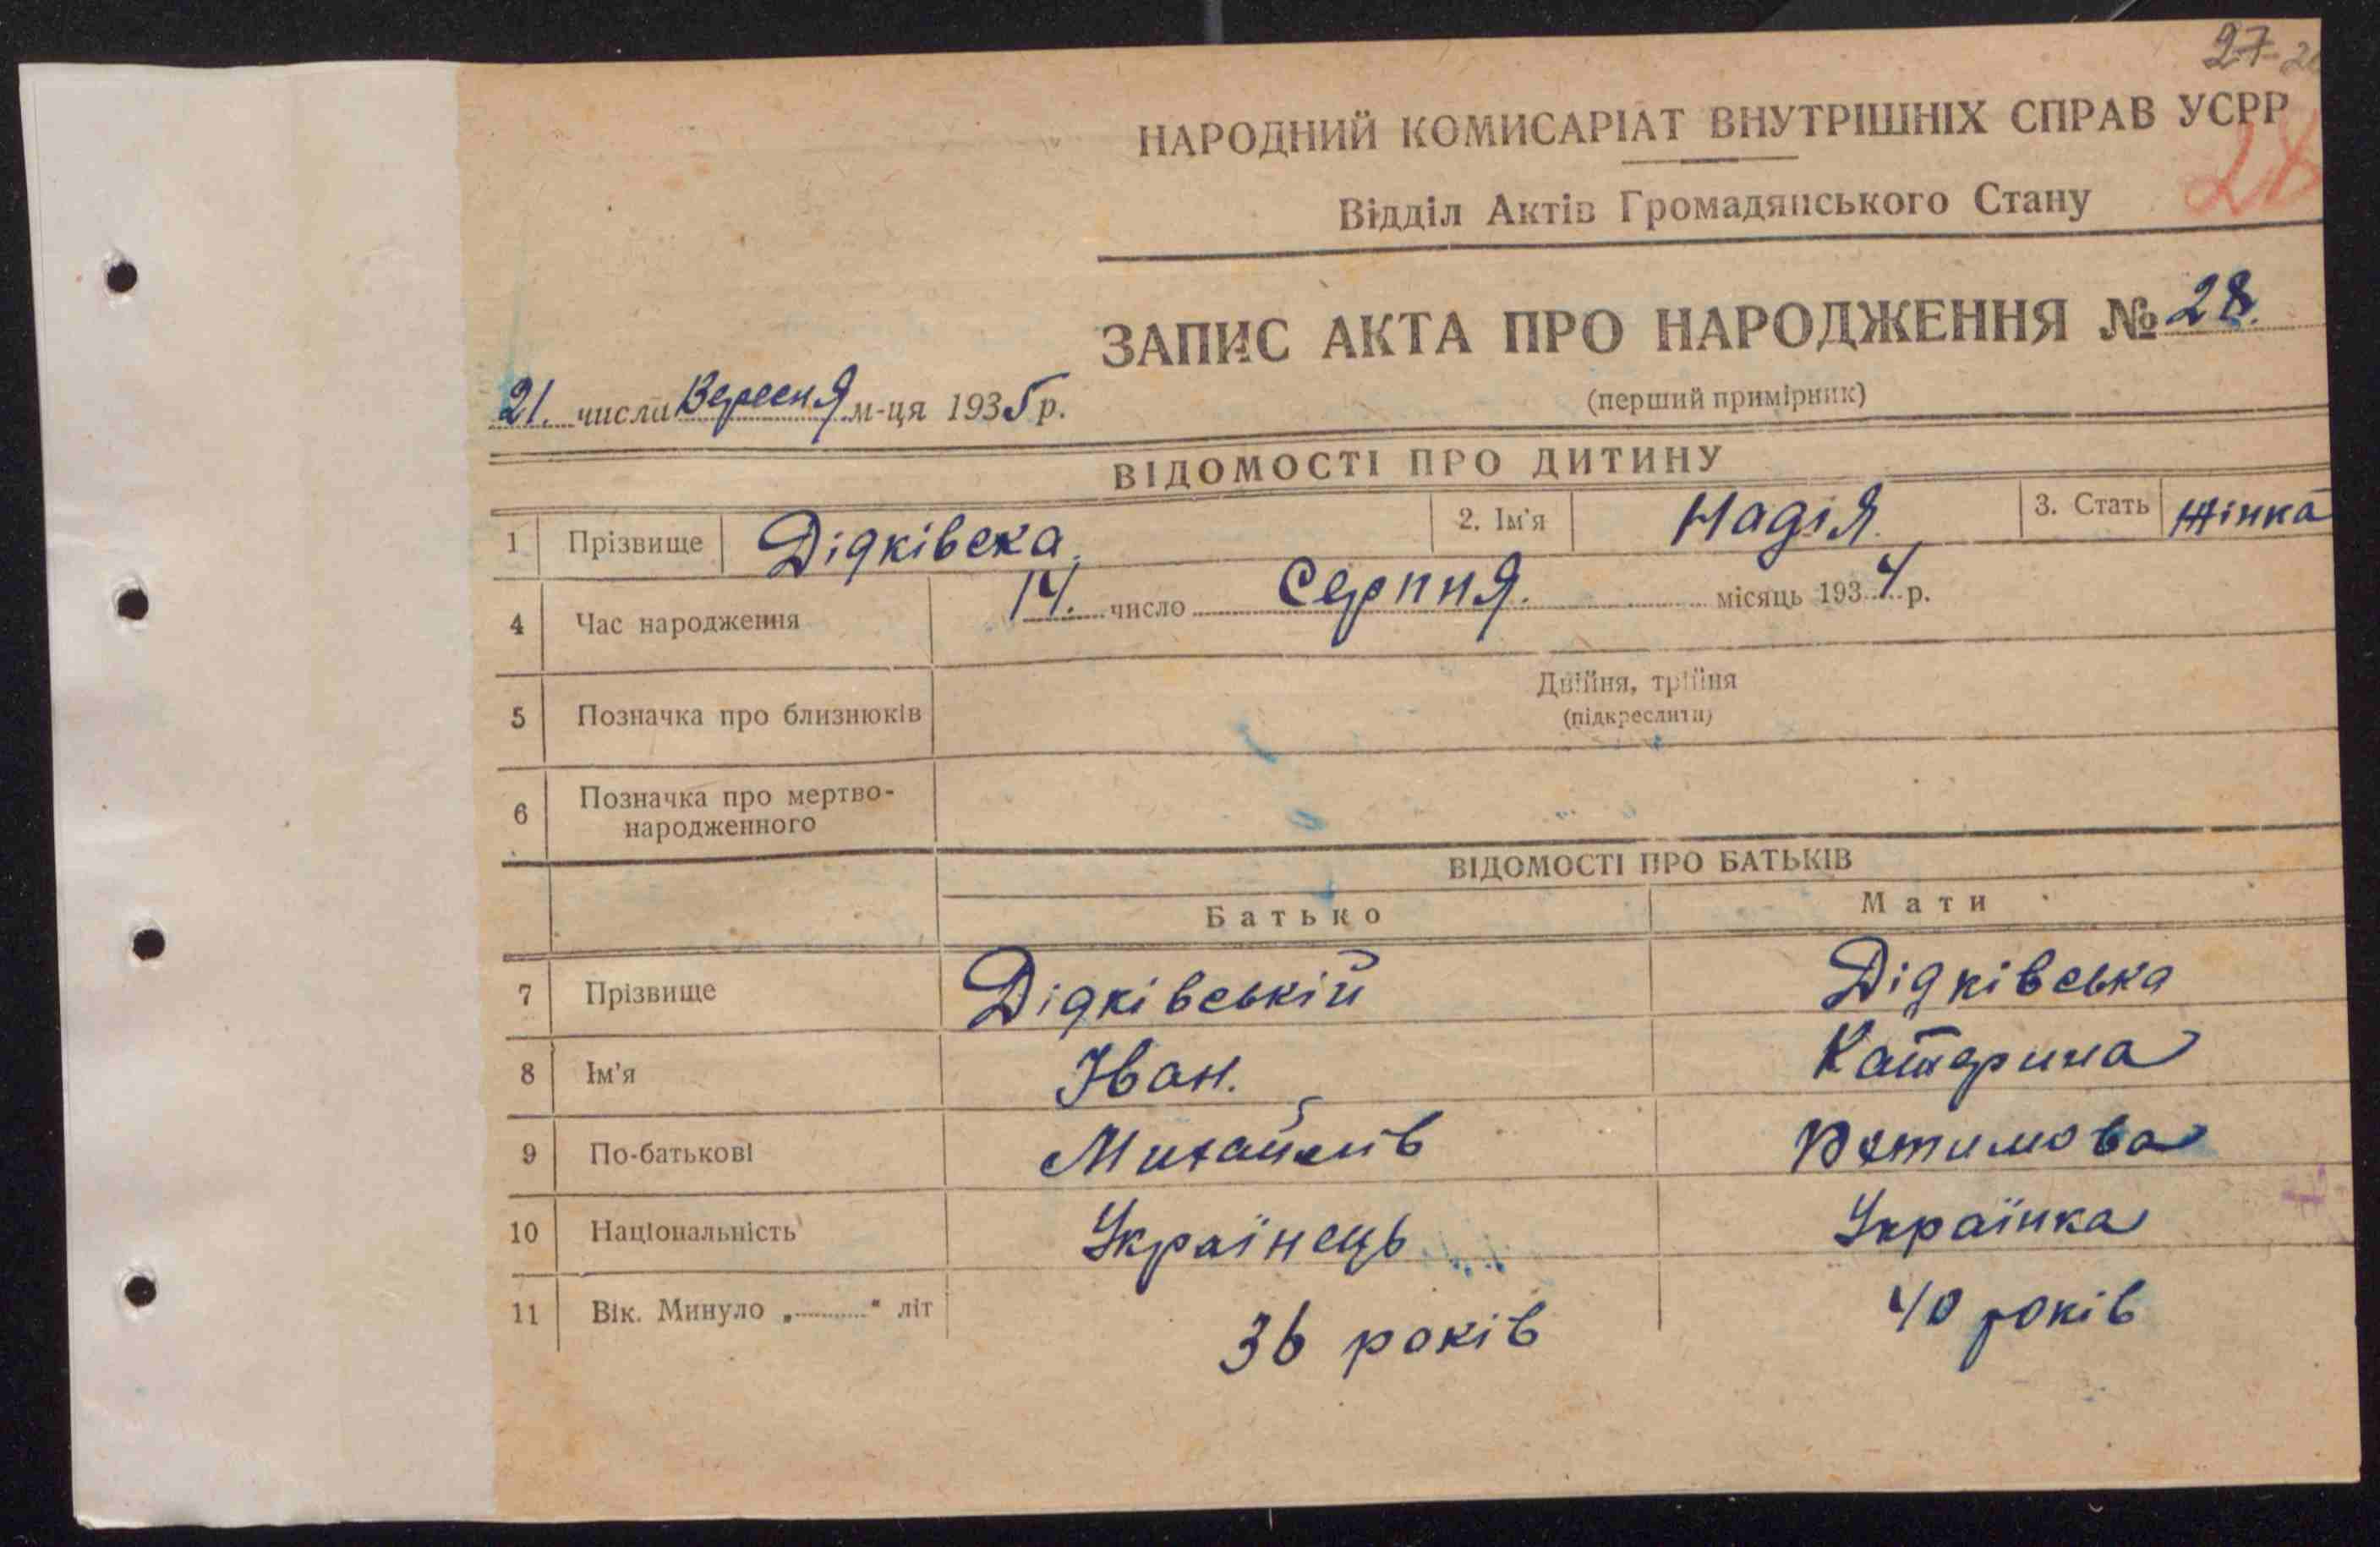 27
НАРОДНИЙ КОМИСАРІАТ ВНУТРІШНІХ СПРАВ УСРР
28
Відділ Актів Громадянського Стану
ЗАПИС АКТА ПРО НАРОДЖЕННЯ № 28.
(перший примірник)
21. числа Вересня м-ця 1935 р.
ВІДОМОСТІ ПРО ДИТИНУ
1 Прізвище Дідківска. 2. Ім'я Надія. 3. Стать жінка
4 Час народження 14. число Серпня. місяць 1934 р.
5 Позначка про близнюків Двійня, трійня
(підкреслити)
6 Позначка про мертво-
народженного
ВІДОМОСТІ ПРО БАТЬКІВ
Батько Мати
7 Прізвище Дідківській Дідківська
8 Ім'я Іван. Катерина
9 По-батькові Михайлів
10 Національність Українець Українка
11 Вік. Минуло „ “ літ 36 років 40 років